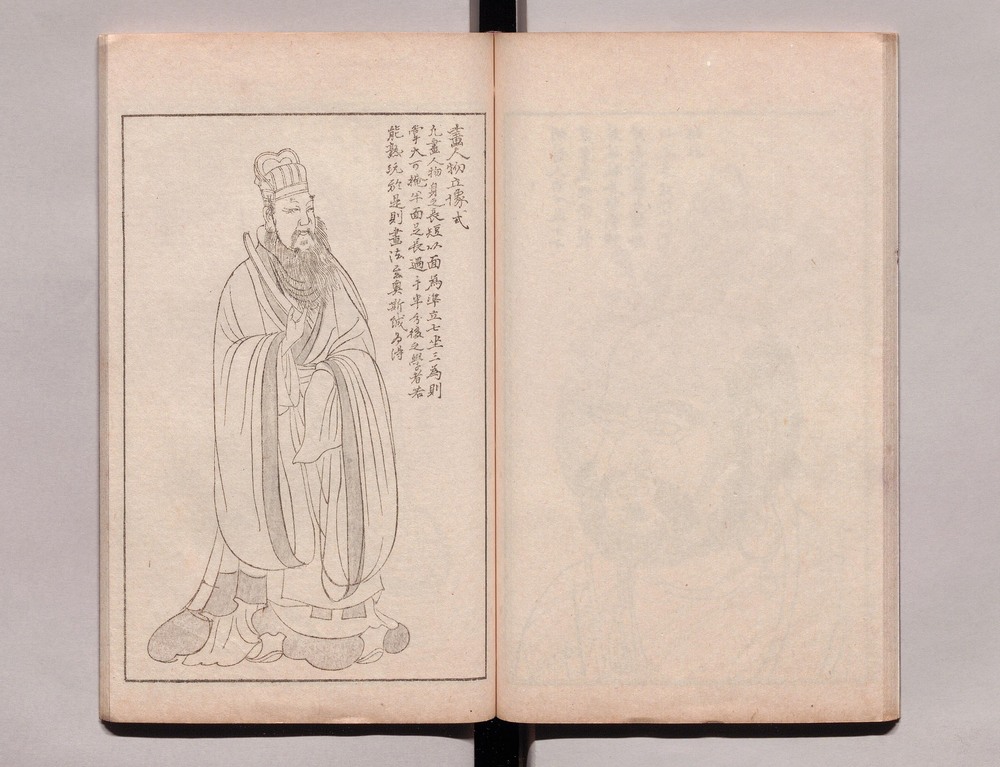 畫人物立像式
凢畫人物身之長短以面爲準立七坐三爲則
掌大可掩半面足長過于半分後之學者若
能熟玩於是則畫法玄奧斯誠乃得